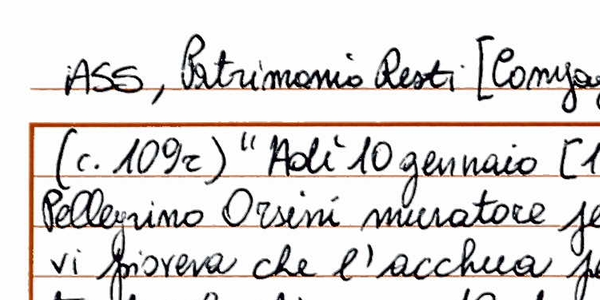 ASS, Patrimonio Resti [Compag
(c. 109r) "Adì 10 gennaio [1
Pellegrino Orsini muratore
vi pioveva che l'acchua